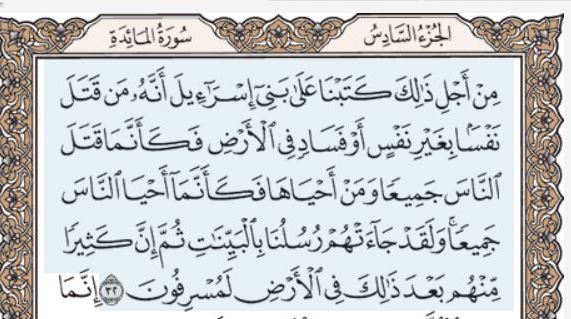 الجُزْءُ السَّادِسُ
سُورَةُ المَائِدَةِ
مِنْ أَجْلِ ذَٰلِكَ كَتَبْنَا عَلَىٰ بَنِىٓ إِسْرَٰٓءِيلَ أَنَّهُۥ مَن قَتَلَ
نَفْسًۢا بِغَيْرِ نَفْسٍ أَوْ فَسَادٍ فِى ٱلْأَرْضِ فَكَأَنَّمَا قَتَلَ
ٱلنَّاسَ جَمِيعًا وَمَنْ أَحْيَاهَا فَكَأَنَّمَآ أَحْيَا ٱلنَّاسَ
جَمِيعًا ۚ وَلَقَدْ جَآءَتْهُمْ رُسُلُنَا بِٱلْبَيِّنَٰتِ ثُمَّ إِنَّ كَثِيرًا
مِّنْهُم بَعْدَ ذَٰلِكَ فِى ٱلْأَرْضِ لَمُسْرِفُونَ ٣٢ إِنَّمَا